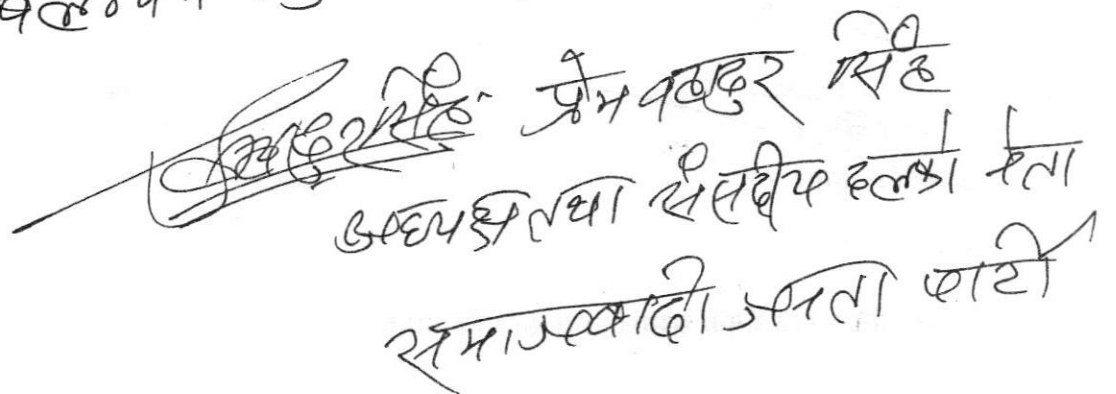 प्रेम बहादुर सिंह
अध्यक्ष तथा संसदीय दलको नेता
समाजवादी जनता पार्टी